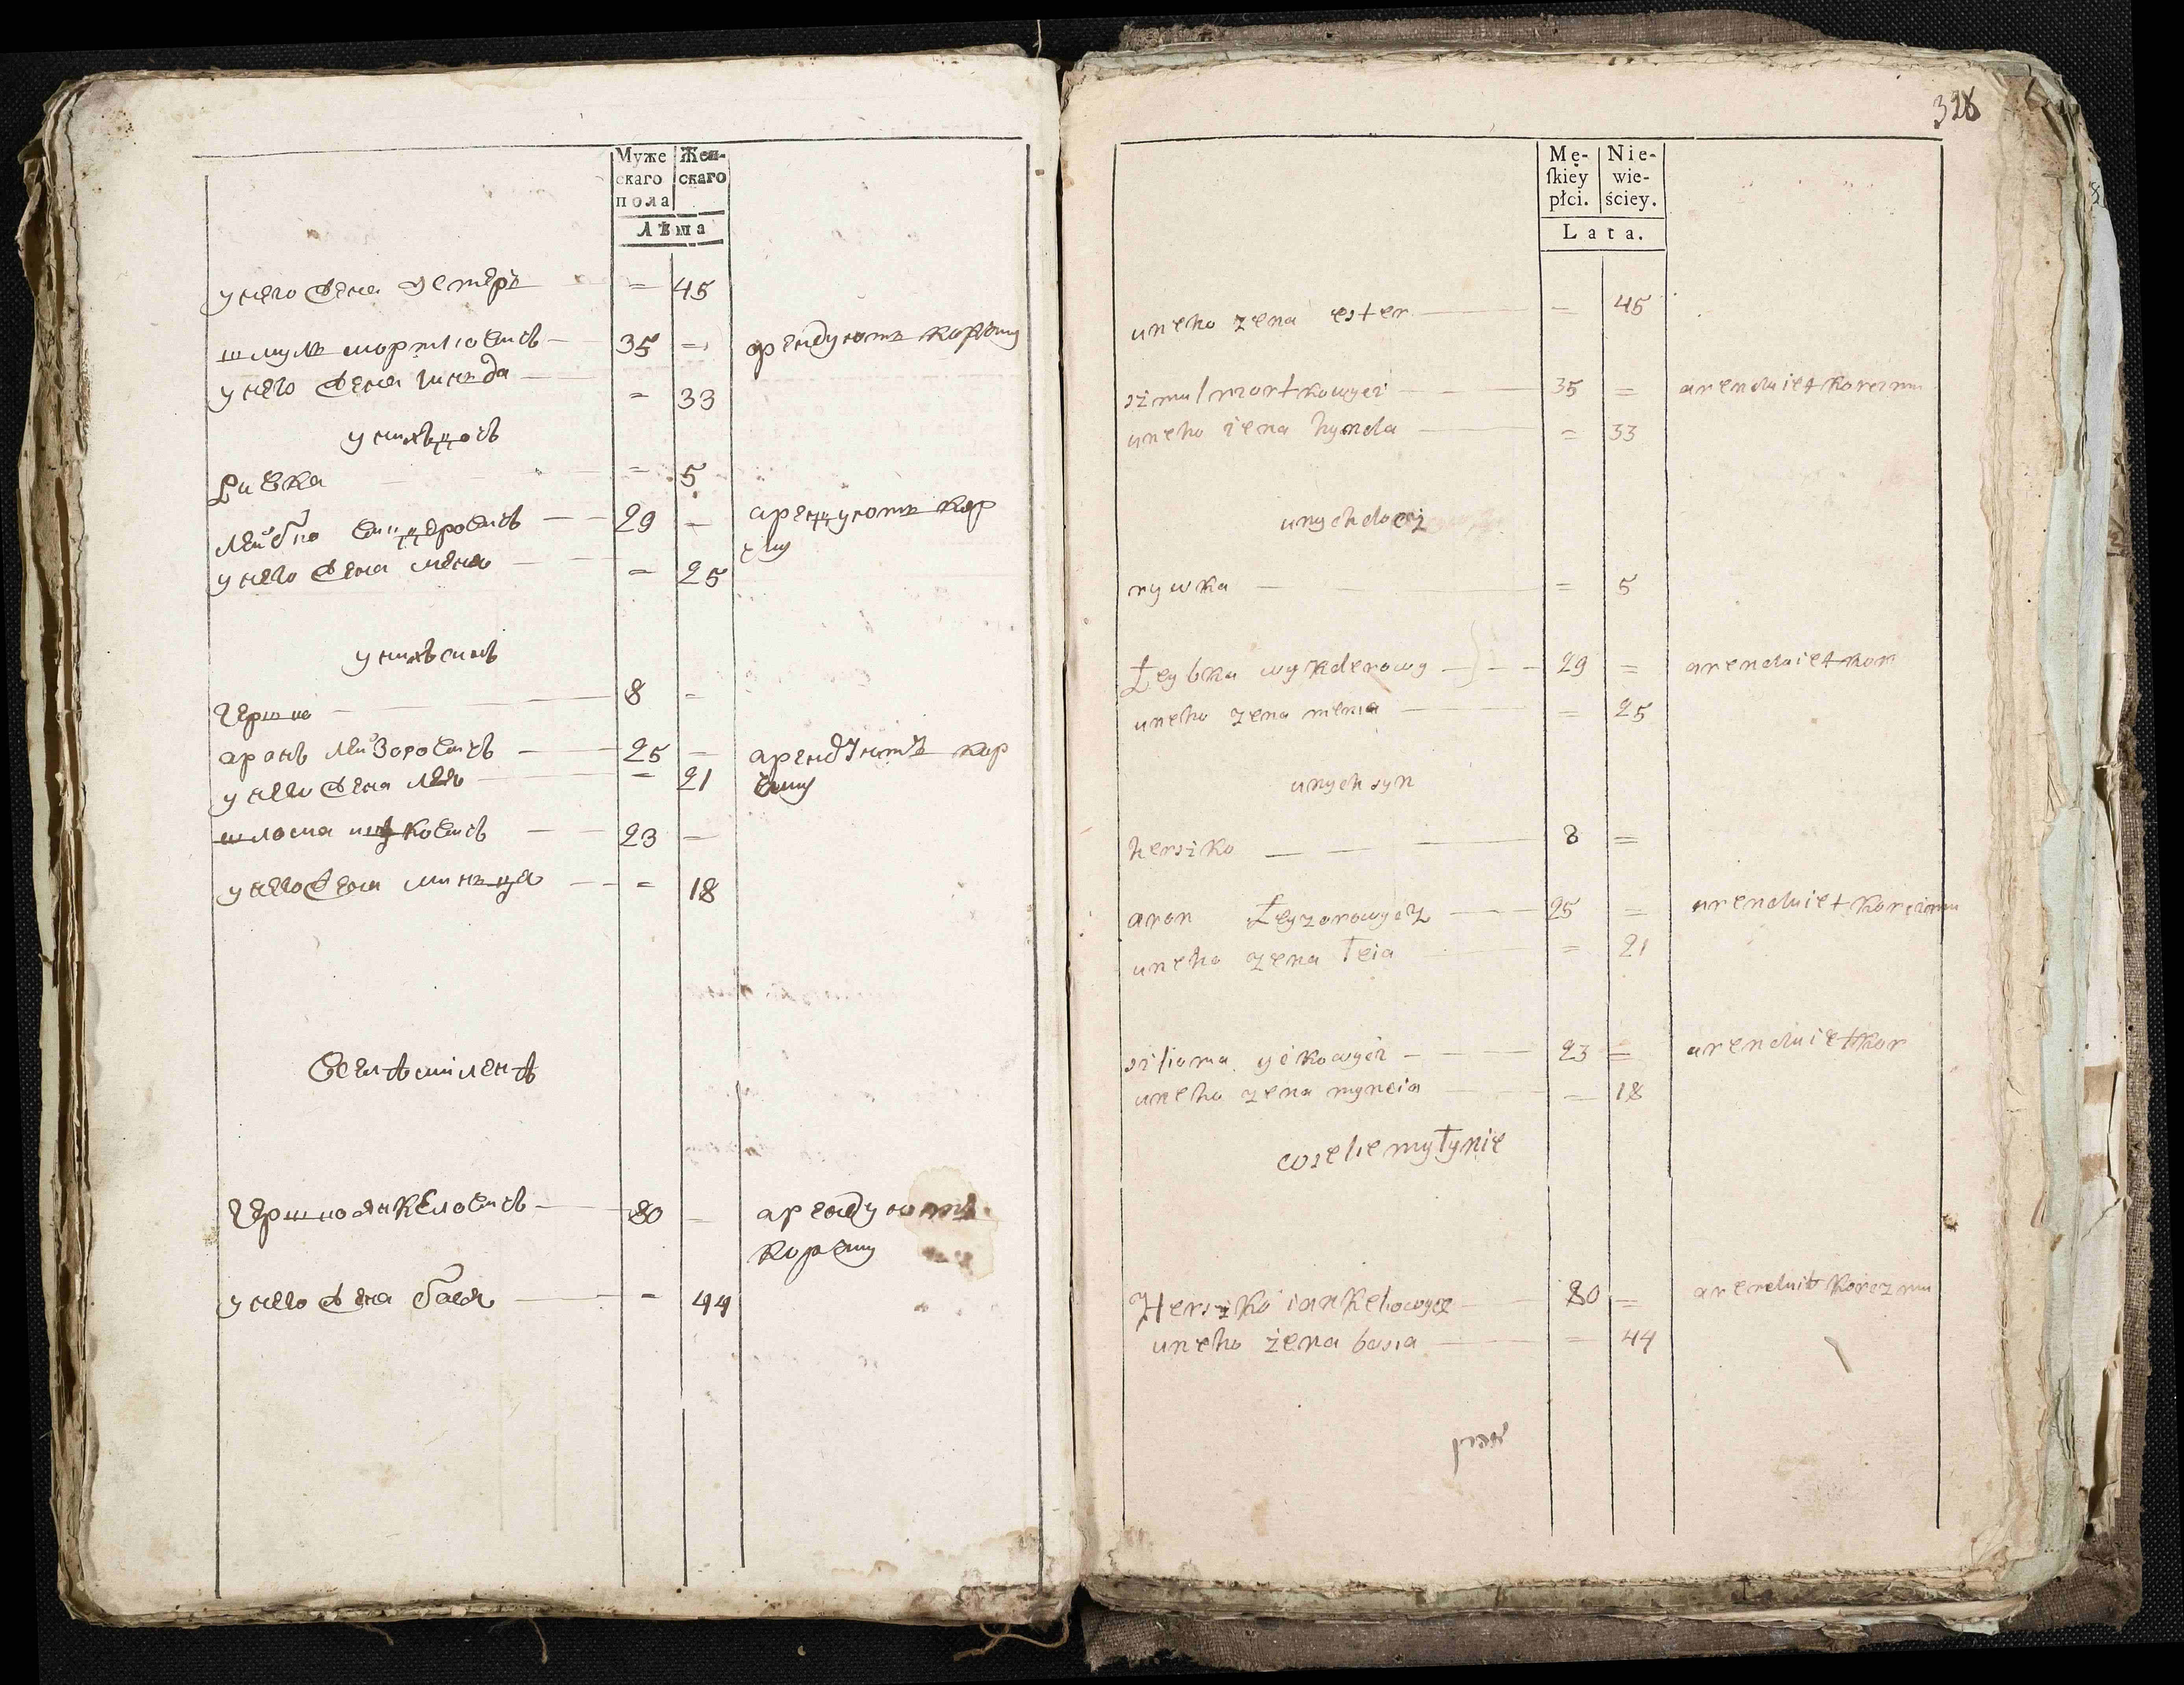 Муже Жен-
скаго скаго
пола
Лѣта
у него жена эстеръ = 45
шмуль мортковичъ 35 = арендуютъ корчму
у него жена гинда = 33
у нихъ дочь
Ривка = 5
лейбко виндеровичъ 29 = арендуютъ кор
чму
у него жена мена = 25
у нихъ сынъ
Гершко 8 =
аронъ лейзоровичъ 25 = арендуютъ кор
чму
у него жена лея = 21
шлома ицковичъ 23 =
у него жена минця = 18
Гершко янкеловичъ 80 = арендуютъ
корчму
у него жена бася = 44
328
Mę- Nie-
ſkiey wie-
płci. ściey.
Lata.
uneho zena ester = 45
szmul mortkowycz 35 = arenduiet korczmu
uneho zena hynda = 33
unych docz
rywka = 5
Łeybka wynderowy 29 = arenduiet kor
uneho zena mena = 25
unych syn
herszko 8 =
aron Łeyzorowycz 25 = arenduiet korczmu
uneho zena łeia = 21
szlioma yckowycz 23 = arenduiet kor
uneho zena myncia = 18
wselie mytynie
Herszko iankelowycz 80 = arenduit korczmu
uneho żena basia = 44